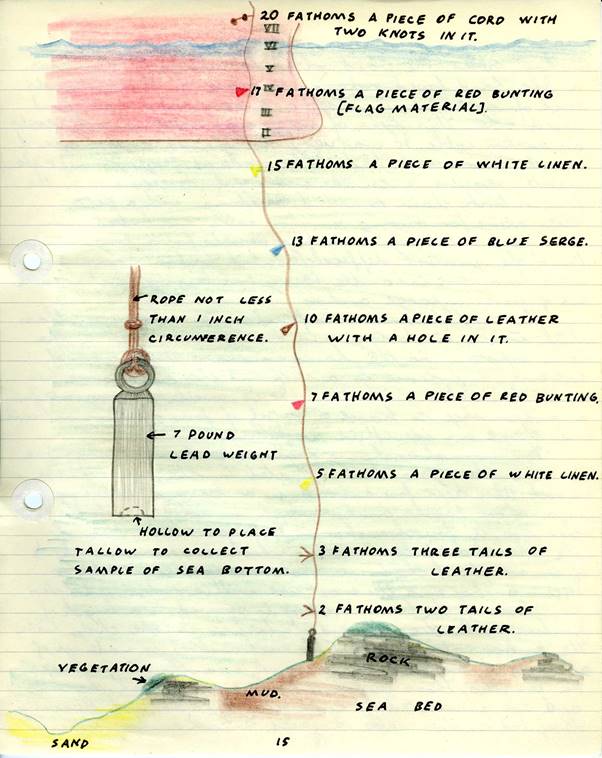 20 FATHOMS A PIECE OF CORD WITH
TWO KNOTS IN IT.
VII
VI
V
IV
III
II
17 FATHOMS A PIECE OF RED BUNTING
[FLAG MATERIAL].
15 FATHOMS A PIECE OF WHITE LINEN.
13 FATHOMS A PIECE OF BLUE SERGE.
ROPE NOT LESS
THAN 1 INCH
CIRCUMFERENCE.
10 FATHOMS A PIECE OF LEATHER
WITH A HOLE IN IT.
7 FATHOMS A PIECE OF RED BUNTING.
7 POUND
LEAD WEIGHT
5 FATHOMS A PIECE OF WHITE LINEN.
HOLLOW TO PLACE
TALLOW TO COLLECT
SAMPLE OF SEA BOTTOM.
3 FATHOMS THREE TAILS OF
LEATHER.
2 FATHOMS TWO TAILS OF
LEATHER.
VEGETATION
ROCK
MUD.
SEA BED
SAND
15